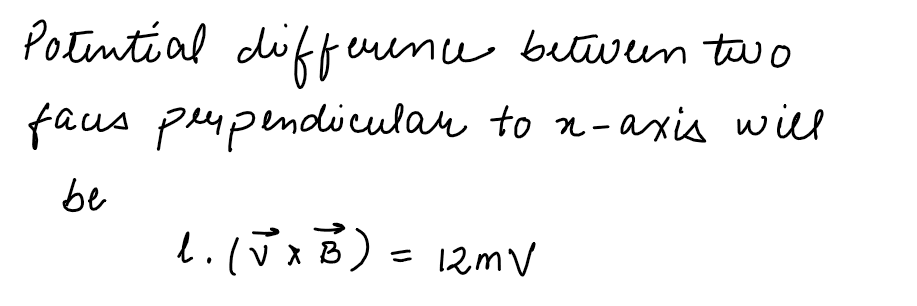 Potential difference between two
faces perpendicular to x-axis will
be
l. (\vec{V} x \vec{B}) = 12mV